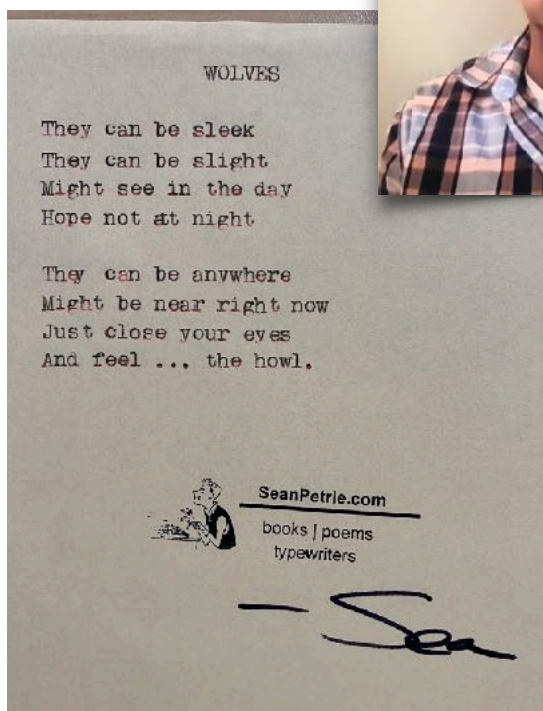 WOLVES
They can be sleek
They can be slight
Might see in the day
Hope not at night
They can be anywhere
Might be near right now
Just close your eyes
And feel ... the howl.
SeanPetrie.com
books | poems
typewriters
— Sean